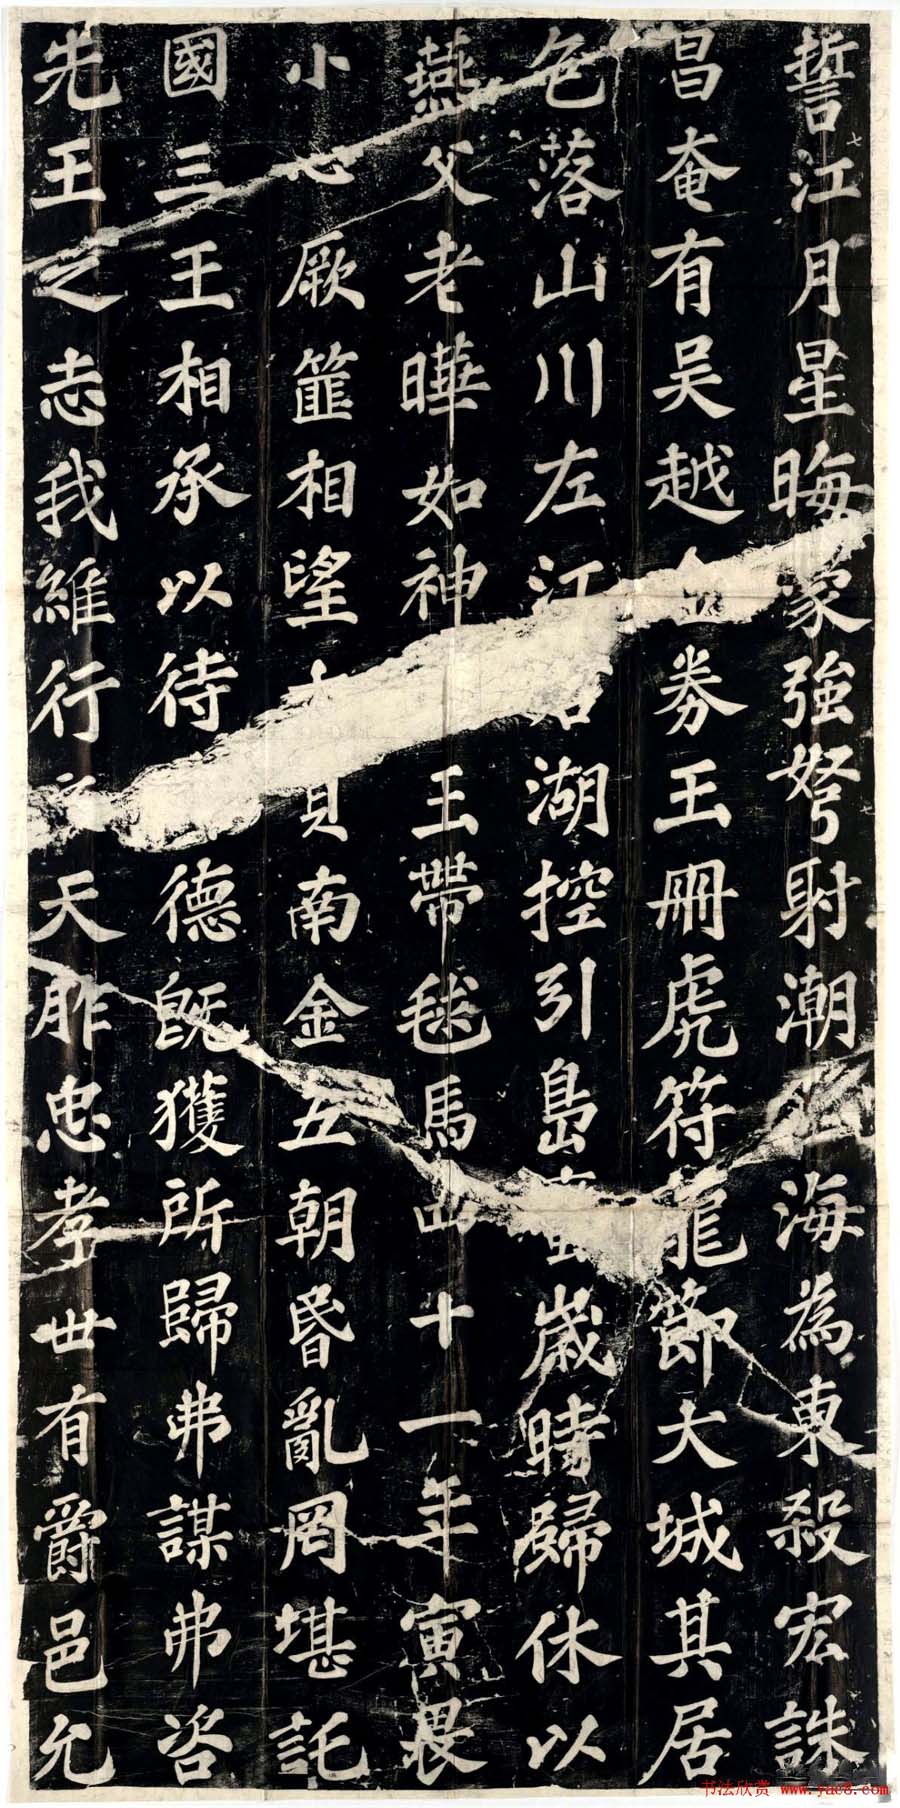 七
誓江月星晦蒙強弩射潮海為東殺宏誅
昌奄有吳越金券王冊虎符龍節大城其居
包落山川左江右湖控引島蠻歲時歸休以
燕父老曄如神玉帶毬馬四十一年寅畏
小心厥篚相望大貝南金五朝昬亂罔堪託
國三王相承以待德既獲所歸弗謀弗咨
先王之志我維行之天胙忠孝世有爵邑允
书法欣赏 www.yac8.com